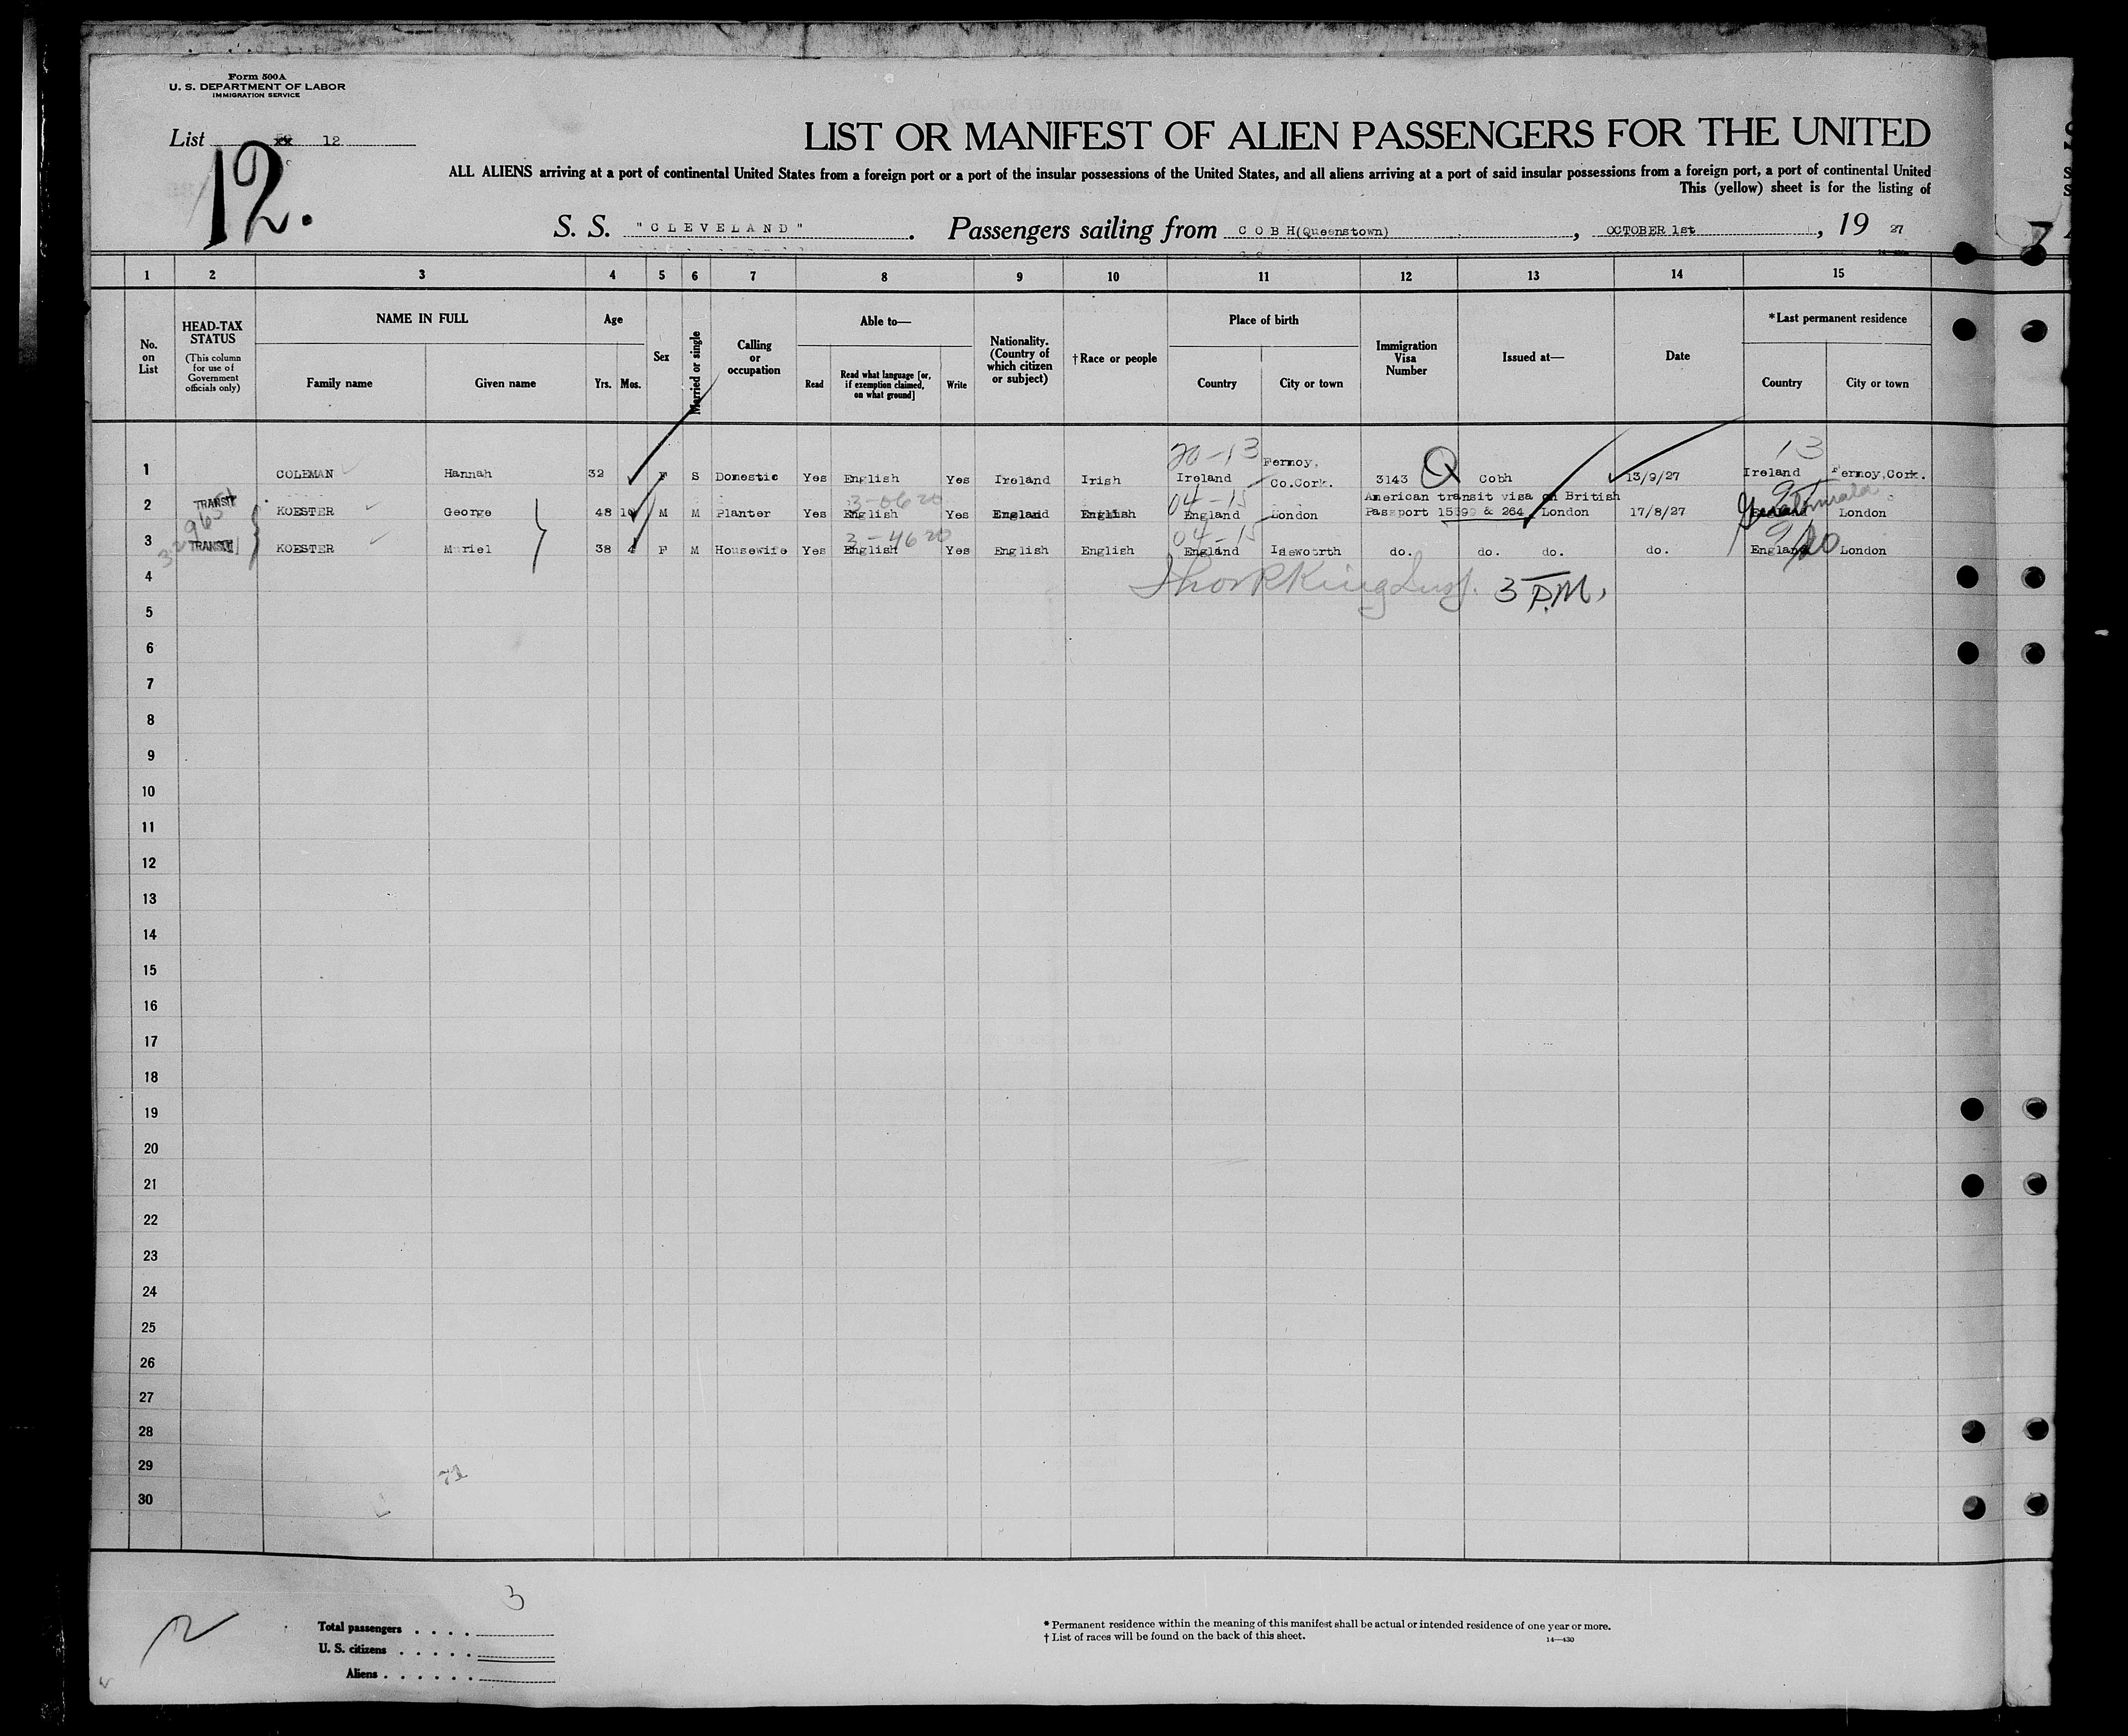 Form 500A
U. S. DEPARTMENT OF LABOR
IMMIGRATION SERVICE
List 12
12.
LIST OR MANIFEST OF ALIEN PASSENGERS FOR THE UNITED
ALL ALIENS arriving at a port of continental United States from a foreign port or a port of the insular possessions of the United States, and all aliens arriving at a port of said insular possessions from a foreign port, a port of continental United
This (yellow) sheet is for the listing of
S. S. "CLEVELAND". Passengers sailing from COBH(Queenstown), OCTOBER 1st, 1927
1 2 3 4 5 6 7 8 9 10 11 12 13 14 15
No. on List
HEAD-TAX STATUS
(This column for use of Government officials only)
NAME IN FULL
Family name Given name
Age
Yrs. Mos.
Sex
Married or single
Calling or occupation
Able to—
Read
Read what language [or, if exemption claimed, on what ground]
Write
Nationality. (Country of which citizen or subject)
†Race or people
Place of birth
Country City or town
Immigration Visa Number
Issued at—
Date
*Last permanent residence
Country City or town
20-13 13
1 COLEMAN Hannah 32 F S Domestic Yes English Yes Ireland Irish Ireland Fermoy, Co.Cork. 3143 Q Cobh 13/9/27 Ireland Fermoy,Cork.
3-0620 04-15 American transit visa on British
2 TRANSIT KOESTER George 48 10 M M Planter Yes English Yes England English England London Passport 15599 & 264 London 17/8/27 England Guatemala London
3-4620 04-15
3 TRANSIT KOESTER Muriel 38 4 F M Housewife Yes English Yes English English England Isleworth do. do. do. do. England London
4
3 P.M.
5
6
7
8
9
10
11
12
13
14
15
16
17
18
19
20
21
22
23
24
25
26
27
28
29
30
3
Total passengers
U. S. citizens
Aliens
* Permanent residence within the meaning of this manifest shall be actual or intended residence of one year or more.
† List of races will be found on the back of this sheet.
14—430